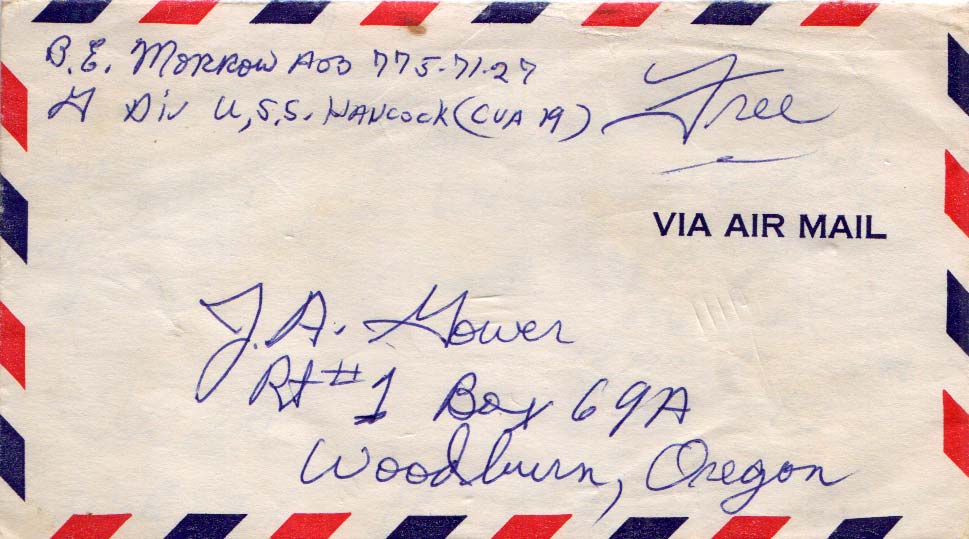 B.E. MORROW AO3 775-71-27
Div U.S.S. HANCOCK (CVA 19)
Free
VIA AIR MAIL
J.A. Gower
Rt #1 Box 69A
Woodburn, Oregon